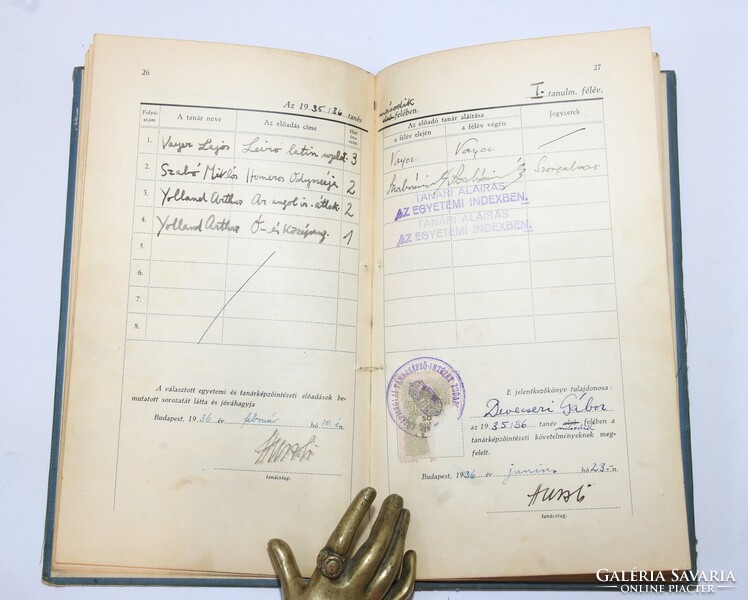 26
Az 1935/36 tanév
Felvétel szám
A tanár neve
Az előadás címe
Heti óraszám
1. Vayer Lajos Leíró latin 3
2. Szabó Miklós Homeros Odysseiája 2
3. Yolland Arthur Az angol ir. 2
4. Yolland Arthur Ó- és középang. 1
5.
6.
7.
8.
A választott egyetemi és tanárképzőintézeti előadások be-
mutatott sorozatát látta és jóváhagyja
Budapest, 1936 év február hó 10.-én
tanácstag.
27
második felében
I. tanulm. félév.
Az előadó tanár aláírása
Jegyzetek
a félév elején
a félév végén
Vayer Vayer
Szorgalmas
TANÁRI ALÁÍRÁS
AZ EGYETEMI INDEXBEN.
TANÁRI ALÁÍRÁS
AZ EGYETEMI INDEXBEN.
50
E jelentkezőkönyv tulajdonosa:
Devecseri Gábor
az 1935/36 tanév második felében a
tanárképzőintézeti követelményeknek meg-
felelt.
Budapest, 1936 év junius hó 23.-n.
tanácstag.
GALÉRIA SAVARIA
ONLINE PIACTÉR